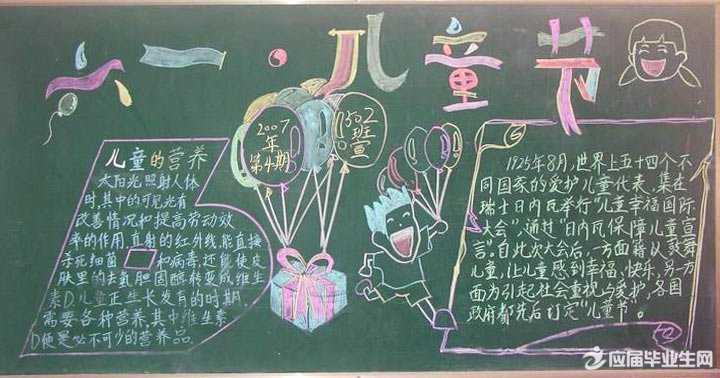 六一·儿童节
儿童的营养
太阳光照射人体
时,其中的可见光有
改善情况和提高劳动效
率的作用.直射的红外线,能直接
杀死细菌 和病毒,还能使皮
肤里的去氧胆固醇转变成维生
素D.儿童正生长发育的时期,
需要各种营养,其中维生素
D便是必不可少的营养品.
2007
年
第4期
1502
班
宣
1925年8月,世界上五十四个不
同国家的爱护儿童代表,集在
瑞士日内瓦举行"儿童幸福国际
大会",通过"日内瓦保障儿童宣
言".自此次大会后,一方面藉以鼓舞
儿童,让儿童感到幸福、快乐,另一方
面为引起社会重视与爱护,各国
政府都先后订定"儿童节"。
应届毕业生网